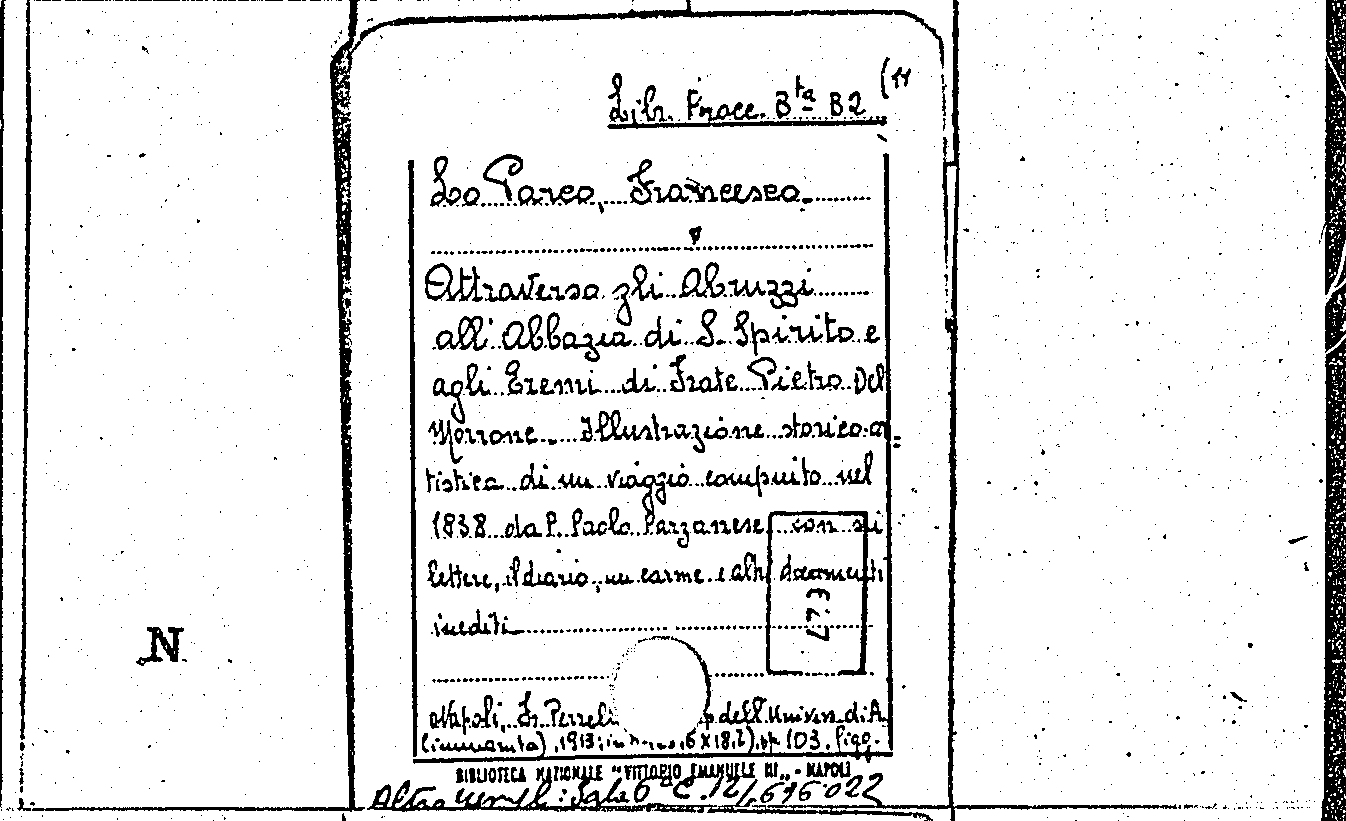 (11
Libr. Proce. Bta B2
Lo Parco, Francesco.
Attraverso gli Abruzzi
all'Abbazia di S. Spirito e
agli Eremi di Frate Pietro Del
Morrone. Illustrazione storico-ar=
tistica di un viaggio compiuto nel
1838 da P. Paolo Parzanese con
lettere, il diario, un carme e altri documenti
inediti
Napoli, Fr. Perrel dell'Univers. di A.
1913, 6 X 18, pp. 103. figg.
BIBLIOTECA NAZIONALE "VITTORIO EMANUELE III" - NAPOLI
Altro 6 C. 12
N